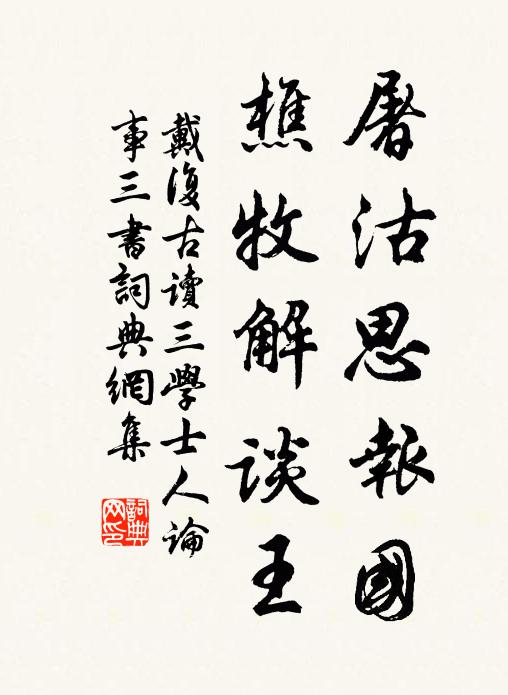 屠沽思報國
樵牧解談王
戴復古讀三學士人論
事三書詞典網集
詞典
网印